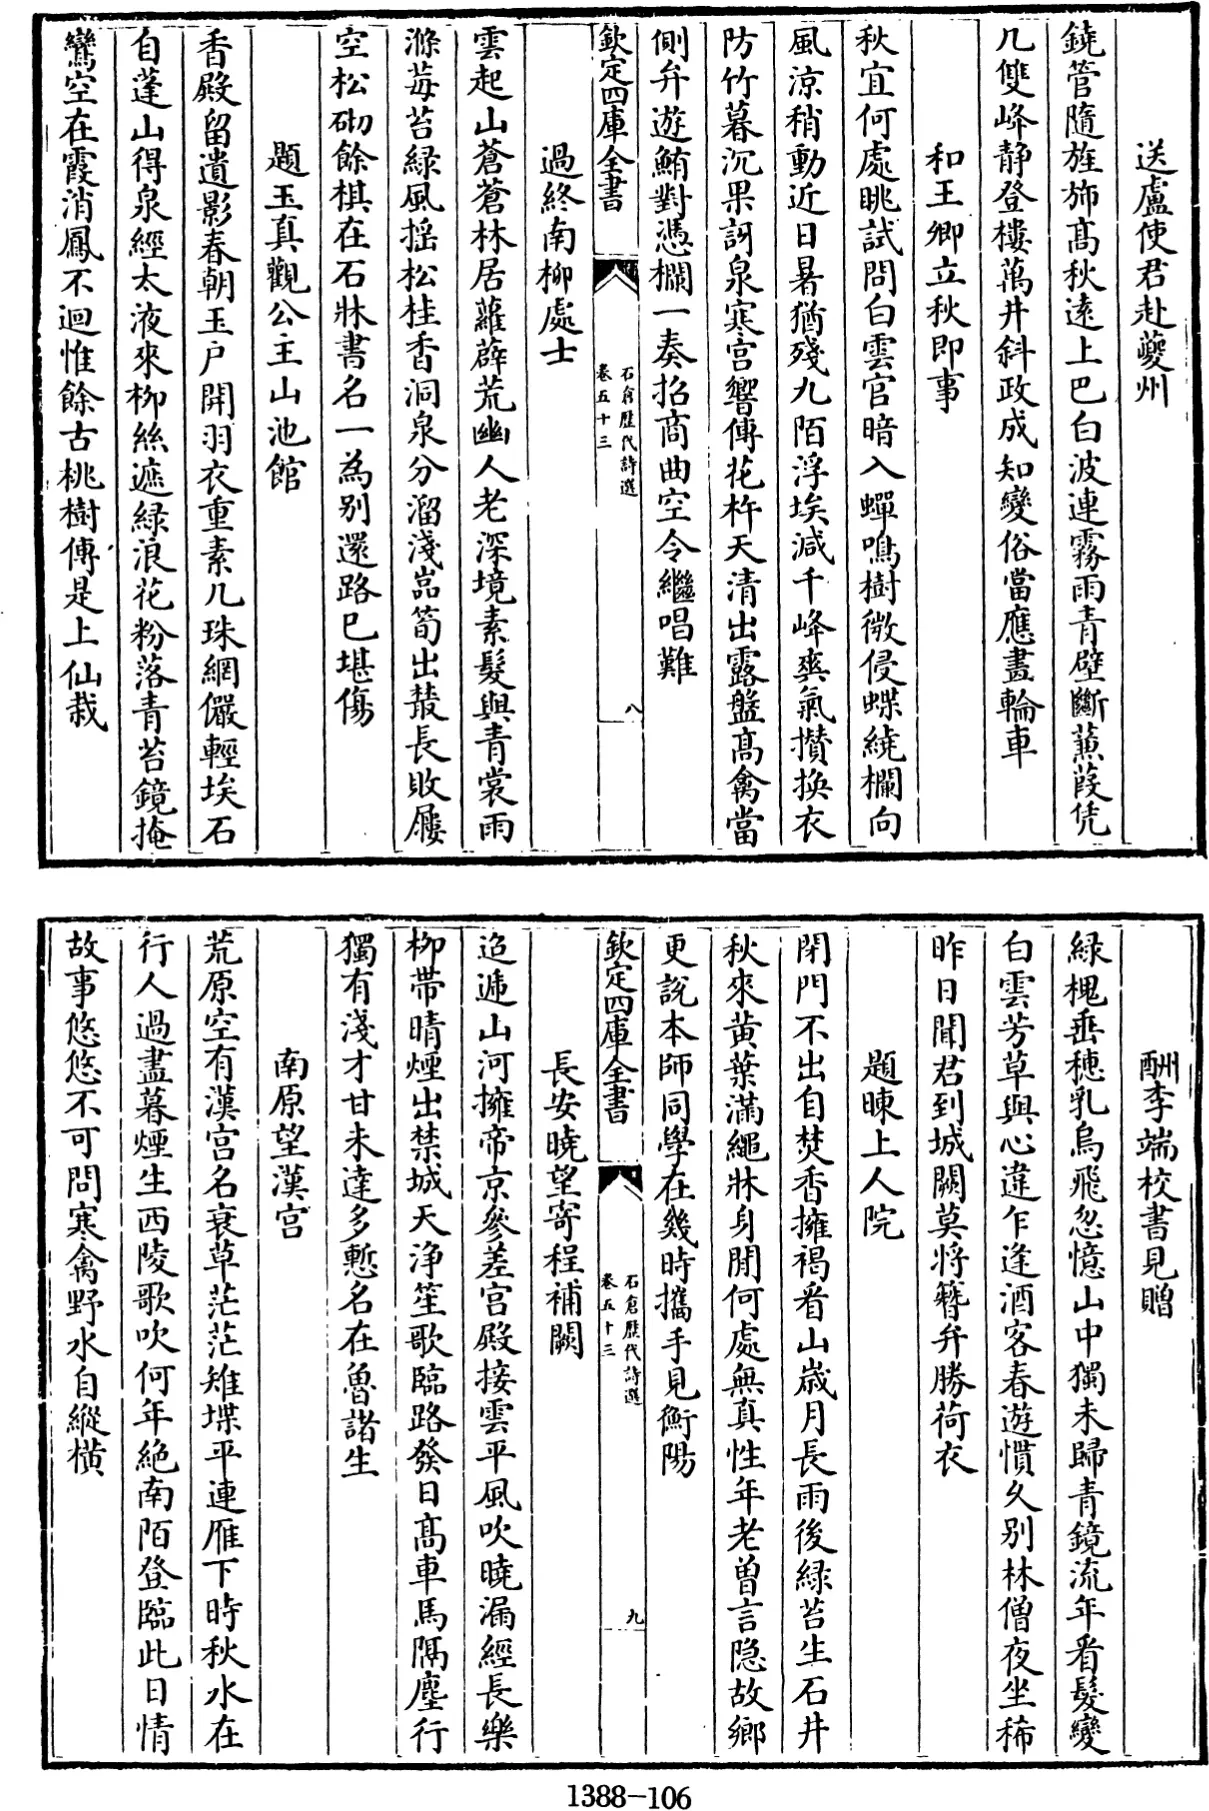 送盧使君赴夔州
鐃管隨旌斾髙秋逺上巴白波連霧雨青壁斷蒹葭凭
几雙峰静登樓萬井斜政成知變俗當應畫輪車
和王卿立秋即事
秋宜何處眺試問白雲官暗入蟬鳴樹微侵蝶繞欄向
風凉稍動近日暑猶殘九陌浮埃減千峰爽氣攅換衣
防竹暮沉果訝泉寒宫響傳花杵天清出露盤髙禽當
側弁遊鮪對慿欄一奏招商曲空令繼唱難
欽定四庫全書
石倉歴代詩選
卷五十三
八
過終南柳處士
雲起山蒼蒼林居蘿薜荒幽人老深境素髮與青裳雨
滌莓苔緑風摇松桂香洞泉分溜淺岀筍出叢長敗屨
空松砌餘棋在石牀書名一為别還路已堪傷
題玉真觀公主山池館
香殿留遺影春朝玉户開羽衣重素几珠網儼輕埃石
自蓬山得泉經太液來柳絲遮緑浪花粉落青苔鏡掩
鸞空在霞消鳳不迴惟餘古桃樹傳是上仙栽
酬李端校書見贈
緑槐垂穗乳烏飛忽憶山中獨未歸青鏡流年看髮變
白雲芳草與心違乍逢酒客春遊慣久别林僧夜坐稀
昨日聞君到城闕莫將簪弁勝荷衣
題暕上人院
閉門不出自焚香擁褐看山歳月長雨後緑苔生石井
秋來黄葉滿繩牀身閒何處無真性年老曽言隠故鄉
更説本師同學在幾時攜手見衡陽
欽定四庫全書
石倉歴代詩選
卷五十三
九
長安曉望寄程補闕
迢遞山河擁帝京參差宫殿接雲平風吹曉漏經長樂
柳帶晴煙出禁城天浄笙歌臨路發日髙車馬隔塵行
獨有淺才甘未達多慙名在魯諸生
南原望漢宫
荒原空有漢宫名衰草茫茫雉堞平連雁下時秋水在
行人過盡暮煙生西陵歌吹何年絶南陌登臨此日情
故事悠悠不可問寒禽野水自縱横
1388-106